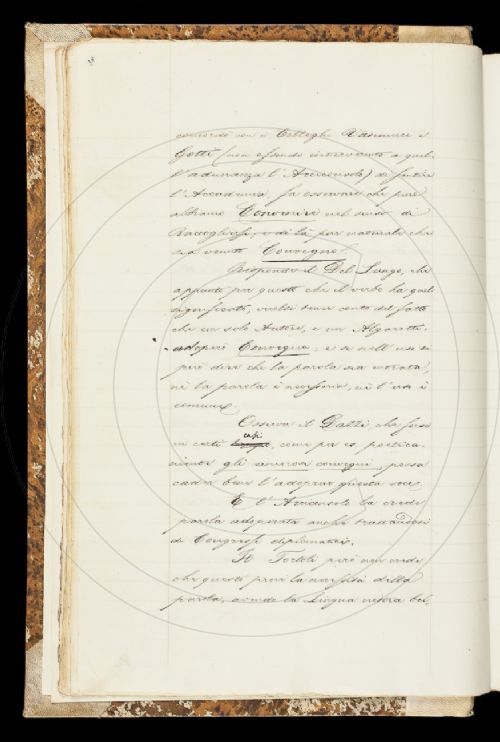 concorde con i Colleghi Vannucci e
Gotti (non essendo intervenuto a quel-
l'adunanza l'Arciconsolo) di sentire
l'Accademia, fa osservare che pure
abbiamo Convenire nel senso di
Raccogliersi, e di là par naturale che
sia venuto Convegno.
Risponde il Del Lungo, che
appunto per questo che il verbo ha quel
significato, vuolsi tener conto del fatto
che un solo Autore, e un Algarotti,
adoperi Convegno, e se nell'uso si
può dire che la parola sia entrata,
nè la parola è necessaria, nè l'uso è
comune.
Osserva il Dazzi, che forse
in certi casi, come per es. poetica-
mente gli amorosi convegni, possa
cader bene l'adoprar questa voce.
E l'Arciconsolo la crede
parola adoperata anche trattandosi
di Congressi diplomatici.
Il Tortoli però non crede
che questo provi la necessità della
parola, avendo la Lingua nostra bel-